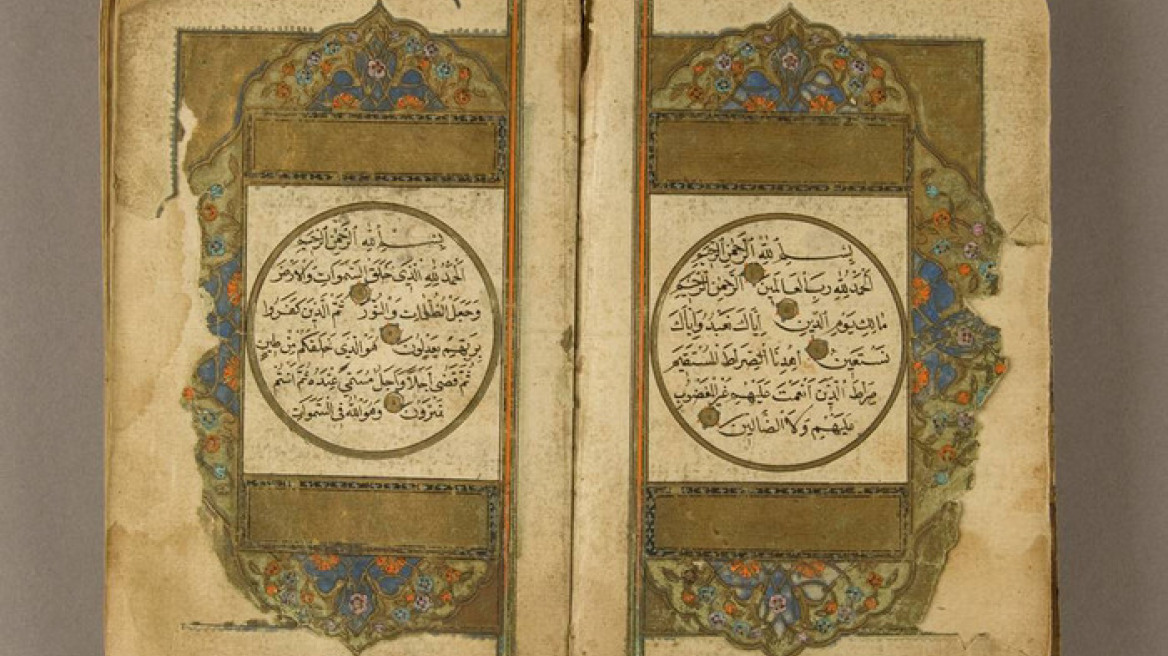 بسم الله الرحمن الرحيم
الحمد لله رب العالمين الرحمن الرحيم
مالك يوم الدين اياك نعبد واياك
نستعين اهدنا الصراط المستقيم
صراط الذين انعمت عليهم غير المغضوب
عليهم ولا الضالين
بسم الله الرحمن الرحيم
الحمد لله الذى خلق السموات والارض
وجعل الظلمات والنور ثم الذين كفروا
بربهم يعدلون هو الذى خلقكم من طين
ثم قضى اجلا واجل مسمى عنده ثم انتم
تمترون وهو الله فى السموات